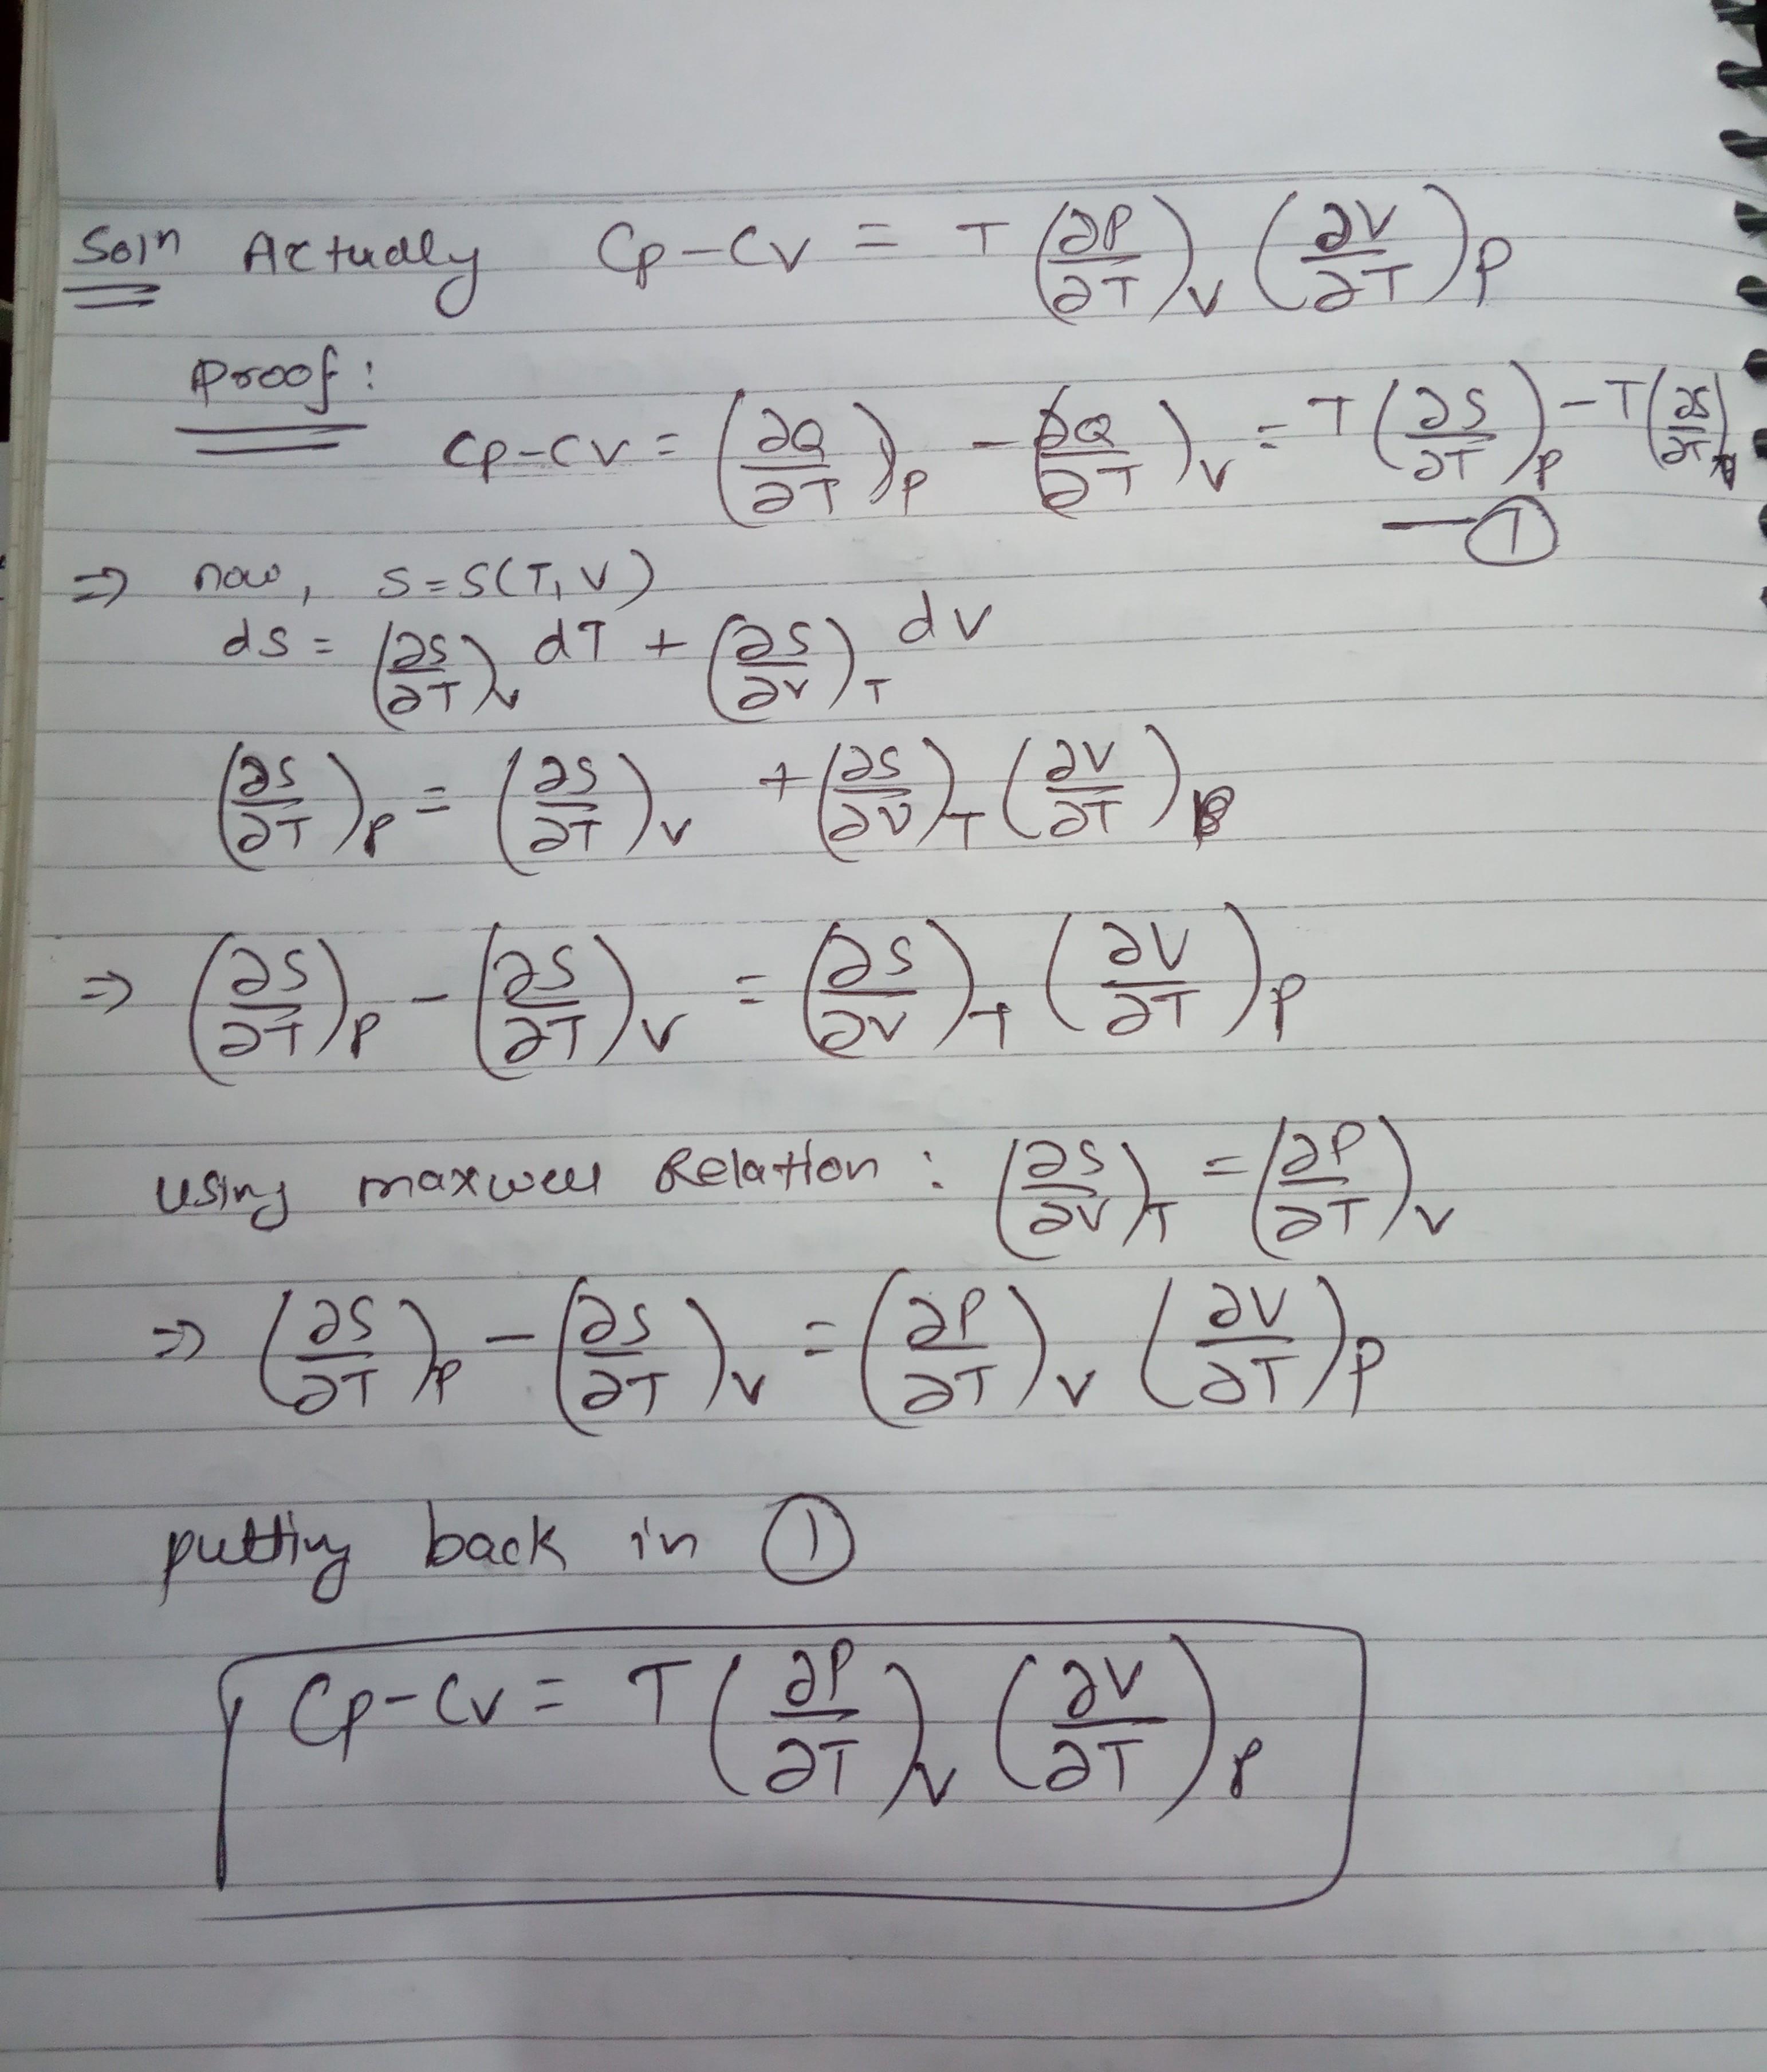 Soln Actually Cp-Cv = T (∂P/∂T)v (∂V/∂T)p
Proof:
Cp-Cv = (∂Q/∂T)p - (∂Q/∂T)v = T(∂S/∂T)p - T(∂S/∂T)v
— ①
⇒ now, S = S(T, V)
dS = (∂S/∂T)v dT + (∂S/∂V)T dV
(∂S/∂T)p = (∂S/∂T)v + (∂S/∂V)T (∂V/∂T)p
⇒ (∂S/∂T)p - (∂S/∂T)v = (∂S/∂V)T (∂V/∂T)p
using maxwell Relation : (∂S/∂V)T = (∂P/∂T)v
⇒ (∂S/∂T)p - (∂S/∂T)v = (∂P/∂T)v (∂V/∂T)p
putting back in ①
Cp-Cv = T (∂P/∂T)v (∂V/∂T)p